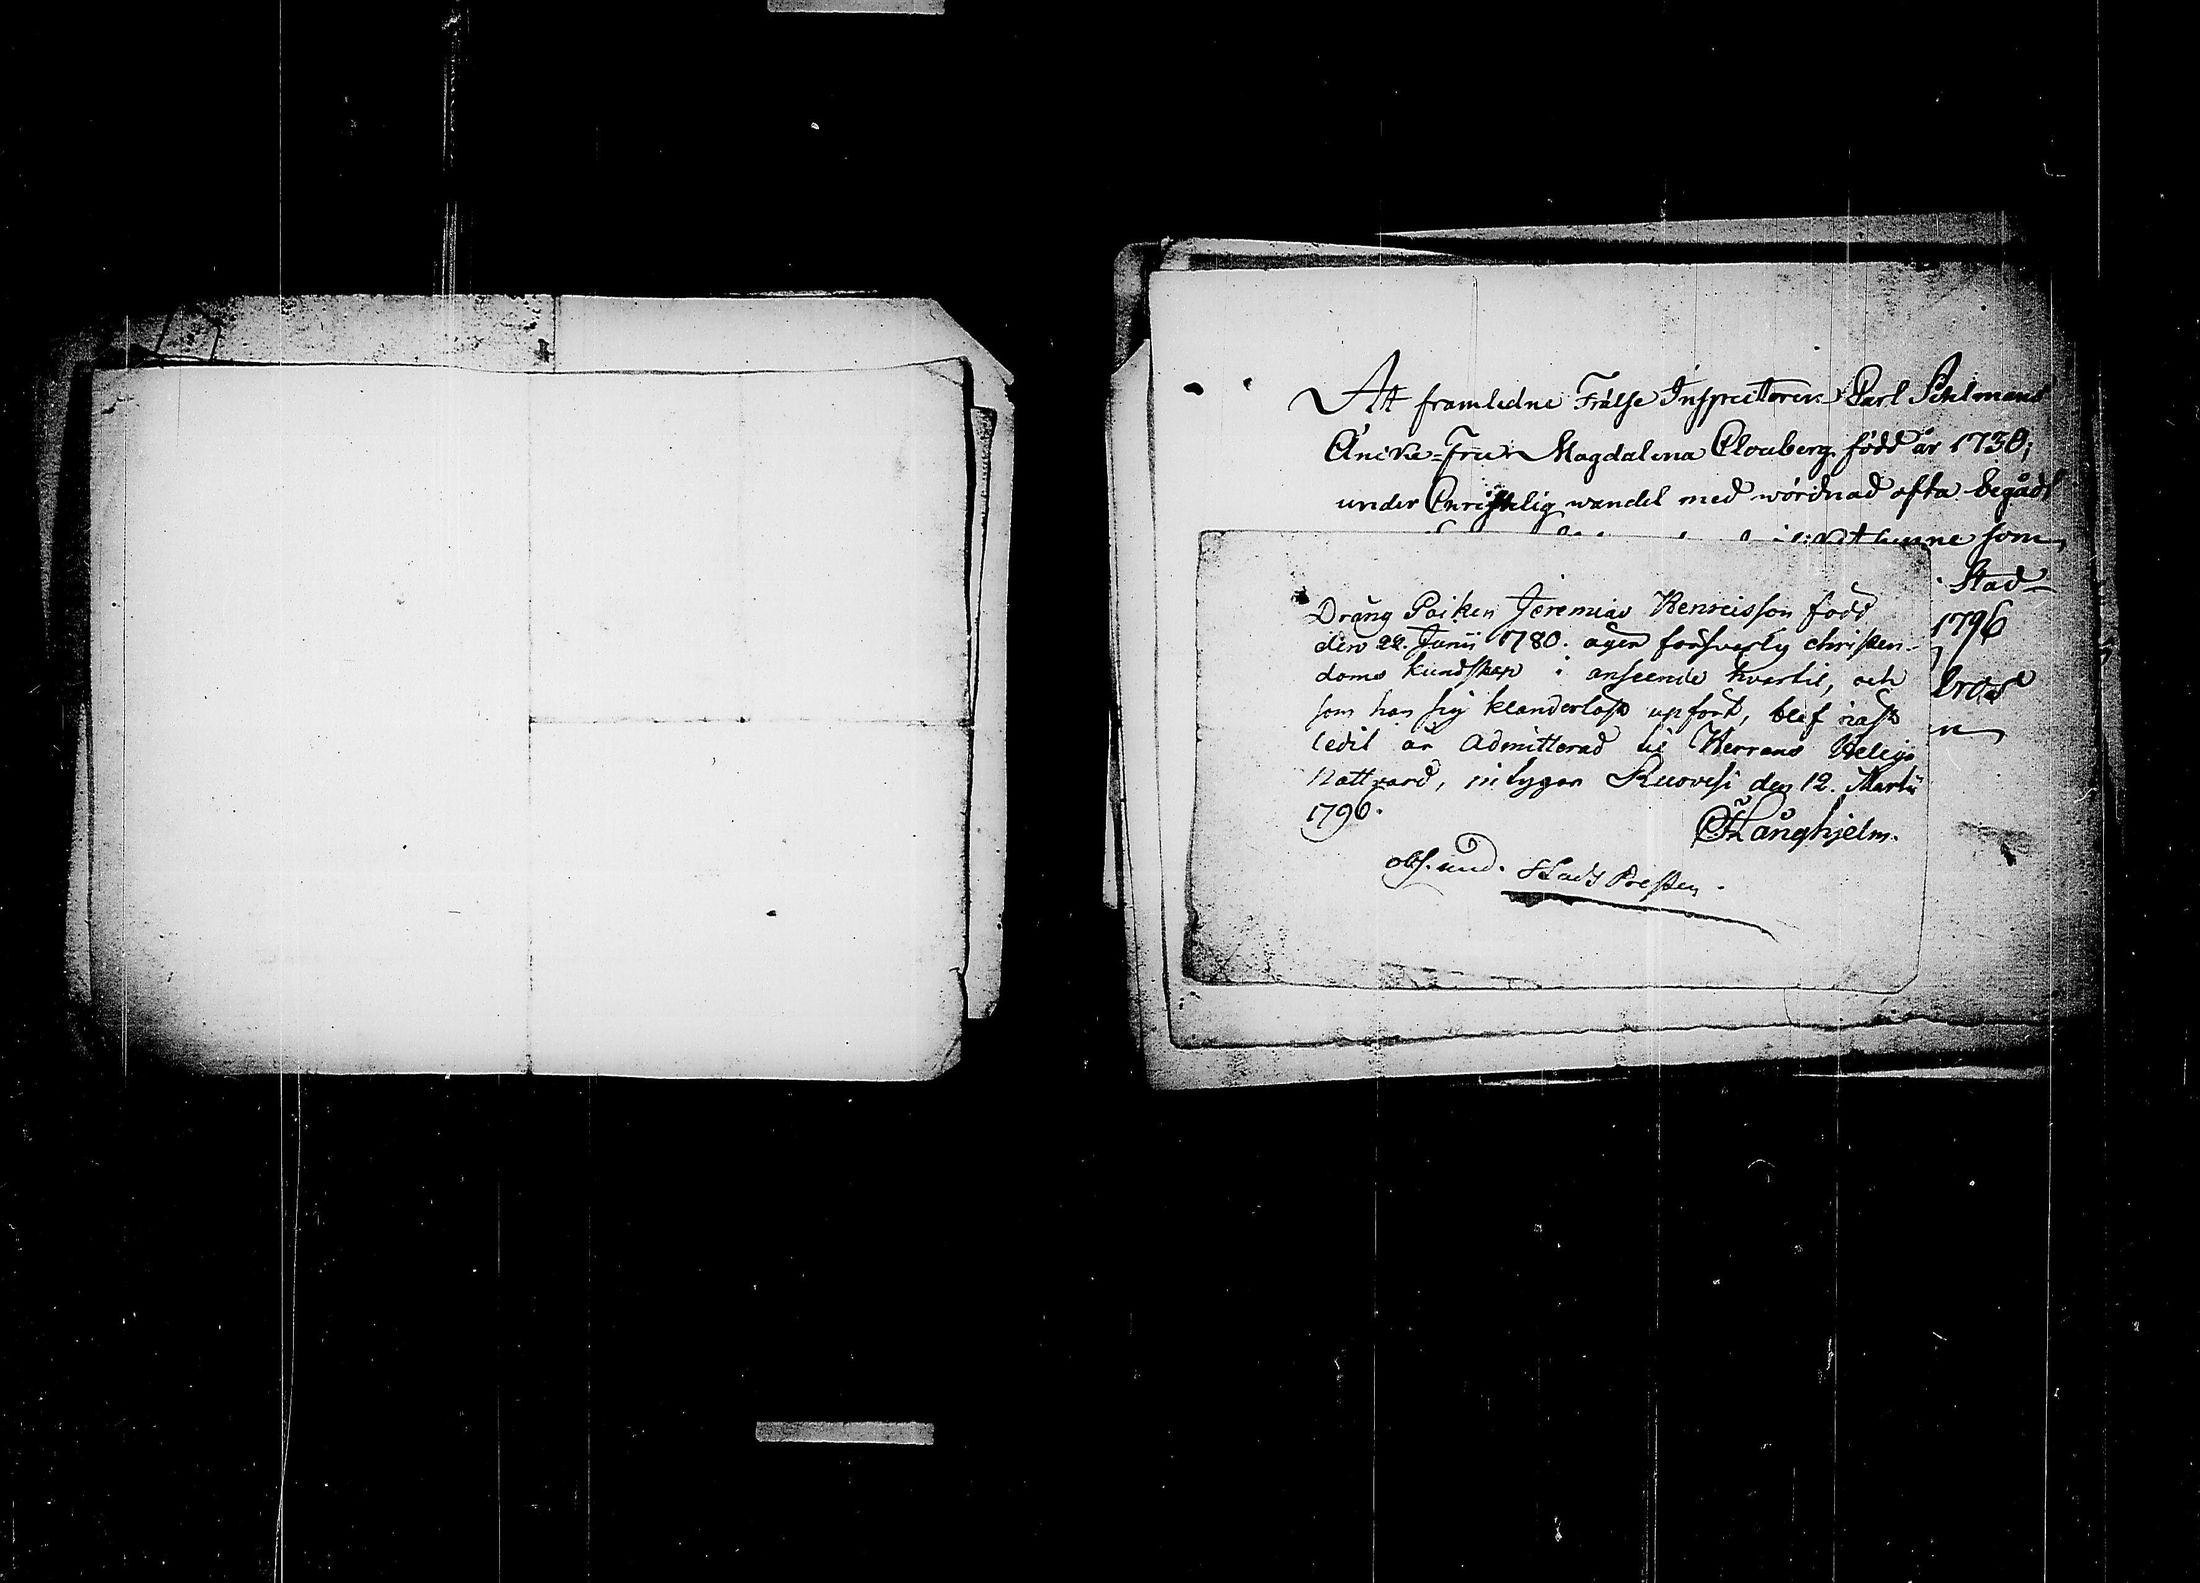 Att framledne Frälse Inspectoren Carl Sihlmans
Encke-Fru Magdalena Clouberg född år 1730,
under Christelig wandel med wördnad ofta begådt
som
Stad
1796
Dräng Poiken Jeremias Henricsson född
den 28. Junii 1780. äger försvarlig christen-
doms kundskap i anseende hvartil, och
som han sig klanderlöst upfört, blef näst
ledit år Admitterad til Herrans Heliga
Nattvard, intygar Ruovesi den 12. Martii
1796.
Långhjelm.